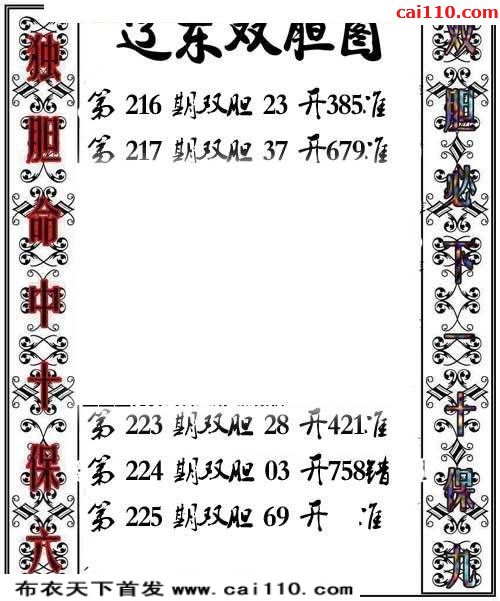 cai110.com
辽东双胆图
独胆命中十保六
第 216 期双胆 23 开385准
第 217 期双胆 37 开679准
第 223 期双胆 28 开421准
第 224 期双胆 03 开758错
第 225 期双胆 69 开 准
双胆必下一十保九
布衣天下首发 www.cai110.com